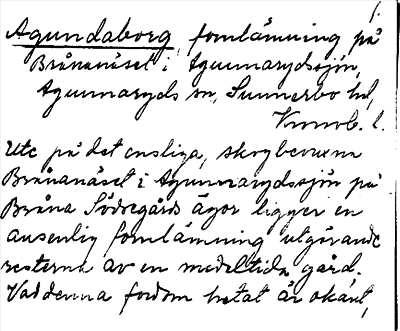 1.
Agundaborg, fornlämning på
Brånanäset i Agunnarydssjön,
Agunnaryds sn, Sunnerbo hd,
Kronob. l.
Ute på det ensliga, skogbevuxna
Brånanäset i Agunnarydssjön på
Bråna Södregårds ägor ligger en
ansenlig fornlämning utgörande
resterna av en medeltida gård.
Vad denna fordom hetat är okänt,